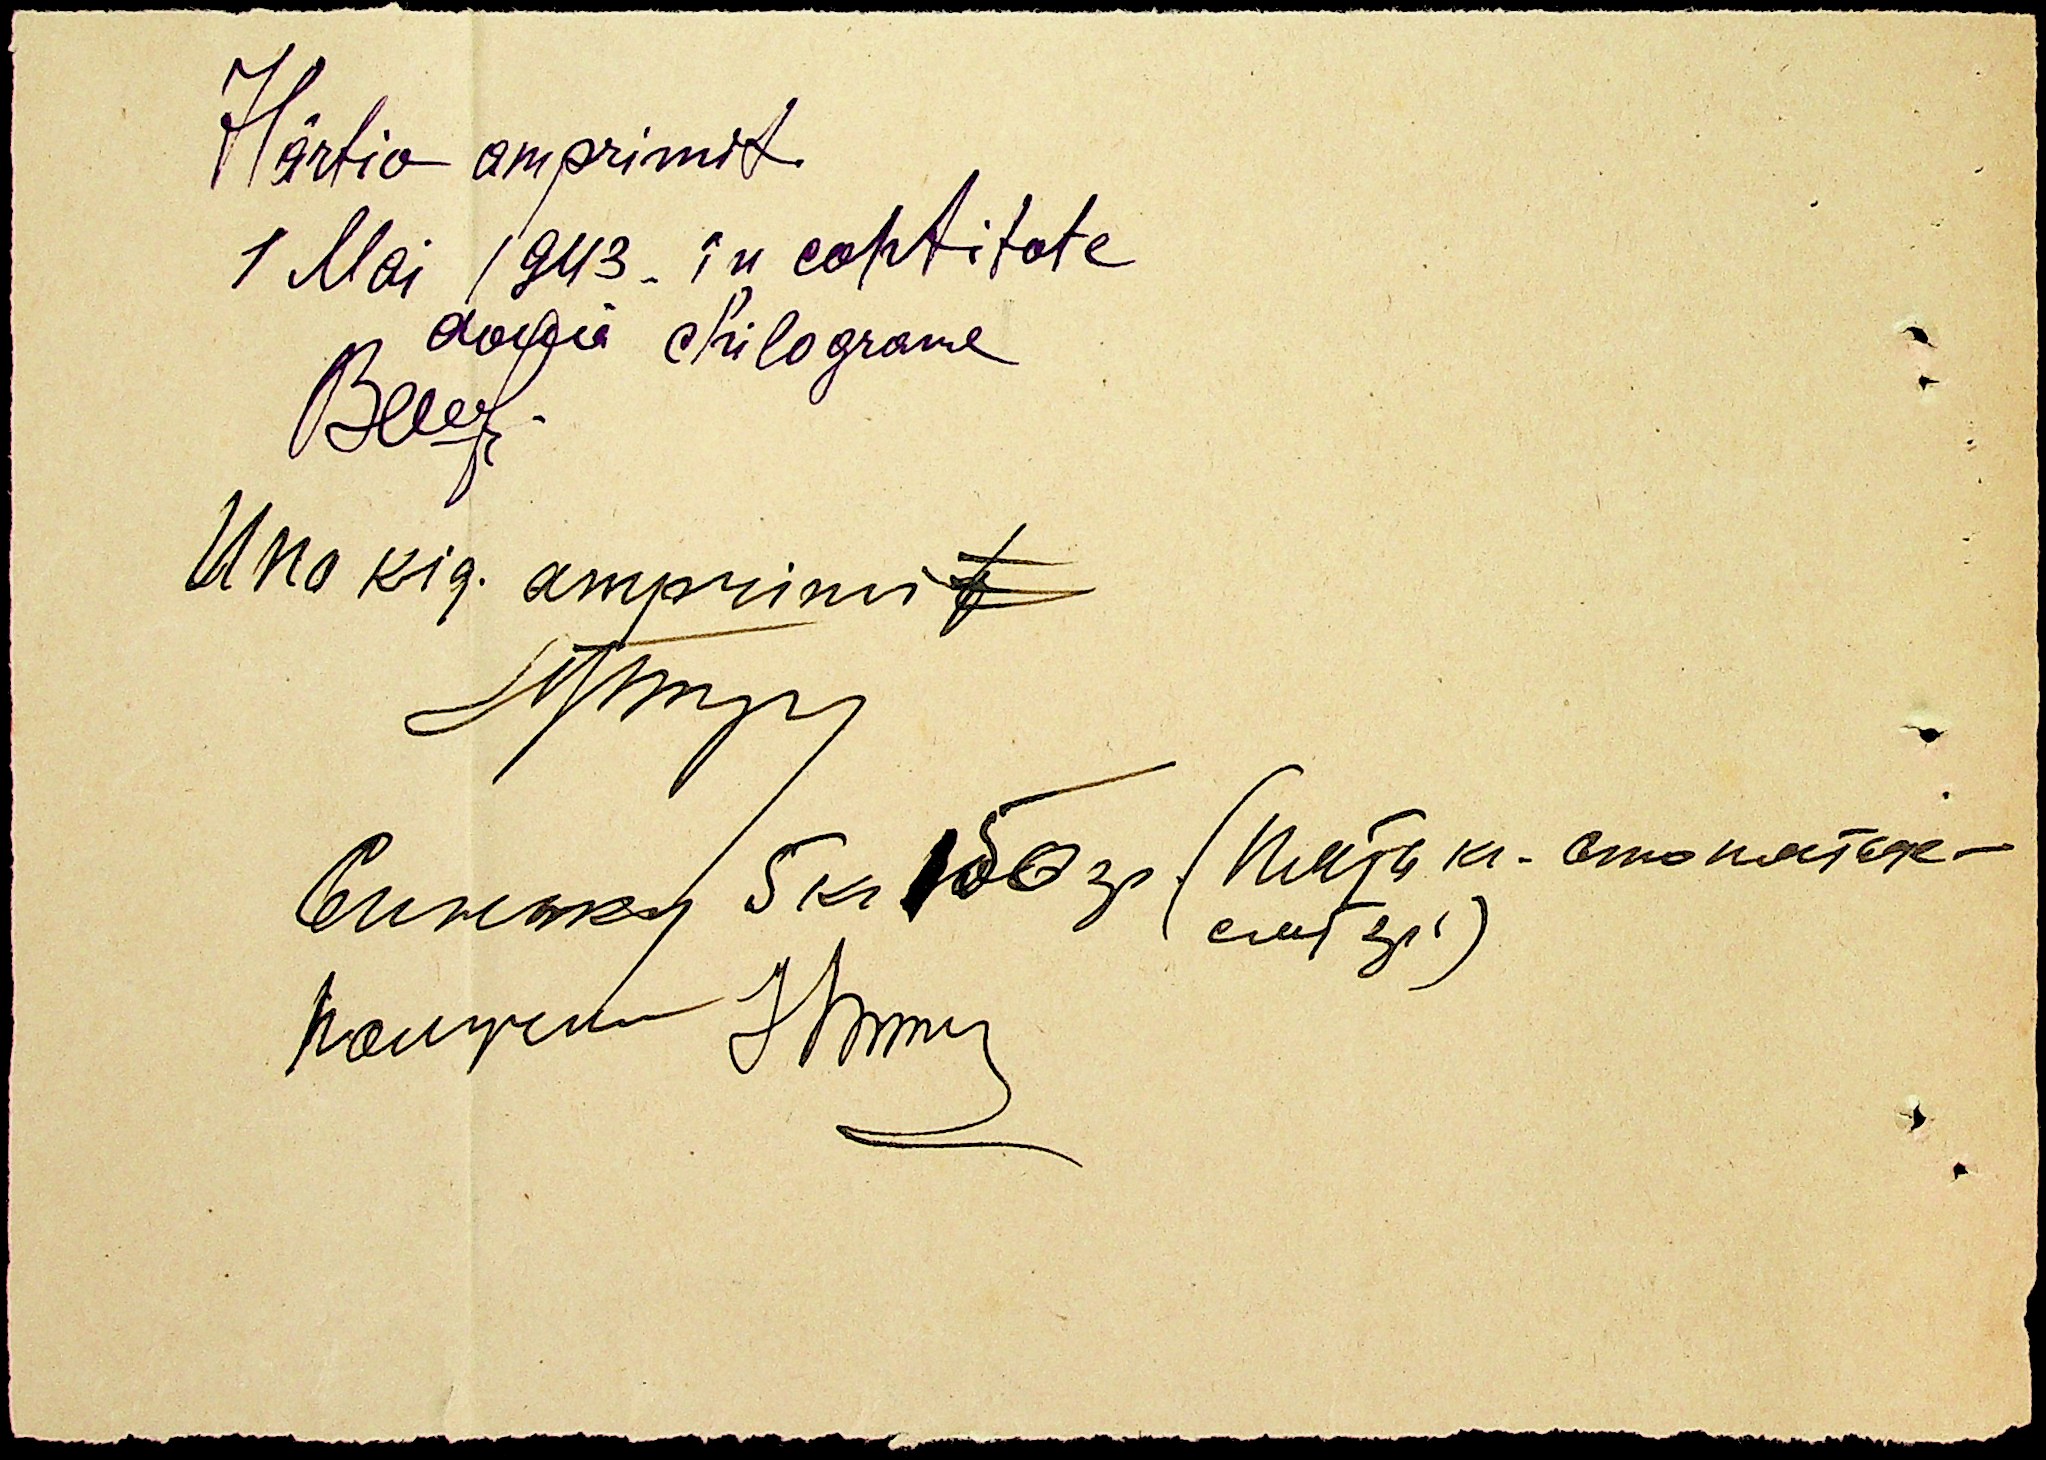 Hârtia amprimit
1 Mai 1943 - în cantitate
două chilograme
Una kig. amprimit
Синьку 5 кг 150 гр (Пять кг. сто пятьде-
сят гр.)
получил